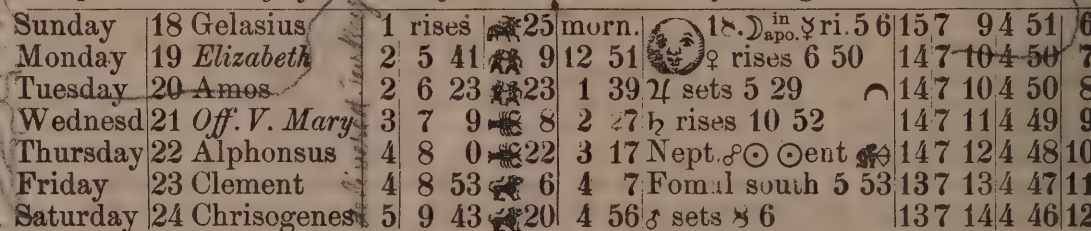 Sunday 18 Gelasius 1 rises 25 morn. 18. ☽ in apo. ☿ ri. 5 6 15 7 9 4 51
Monday 19 Elizabeth 2 5 41 9 12 51 ♀ rises 6 50 14 7 10 4 50 7
Tuesday 20 Amos 2 6 23 23 1 39 ♃ sets 5 29 14 7 10 4 50 8
Wednesd 21 Off. V. Mary 3 7 9 8 2 27 ♄ rises 10 52 14 7 11 4 49 9
Thursday 22 Alphonsus 4 8 0 22 3 17 Nept. ☍ ☉ ☉ ent ♐ 14 7 12 4 48 10
Friday 23 Clement 4 8 53 6 4 7 Fomal south 5 53 13 7 13 4 47 11
Saturday 24 Chrisogenes 5 9 43 20 4 56 ♂ sets 8 6 13 7 14 4 46 12